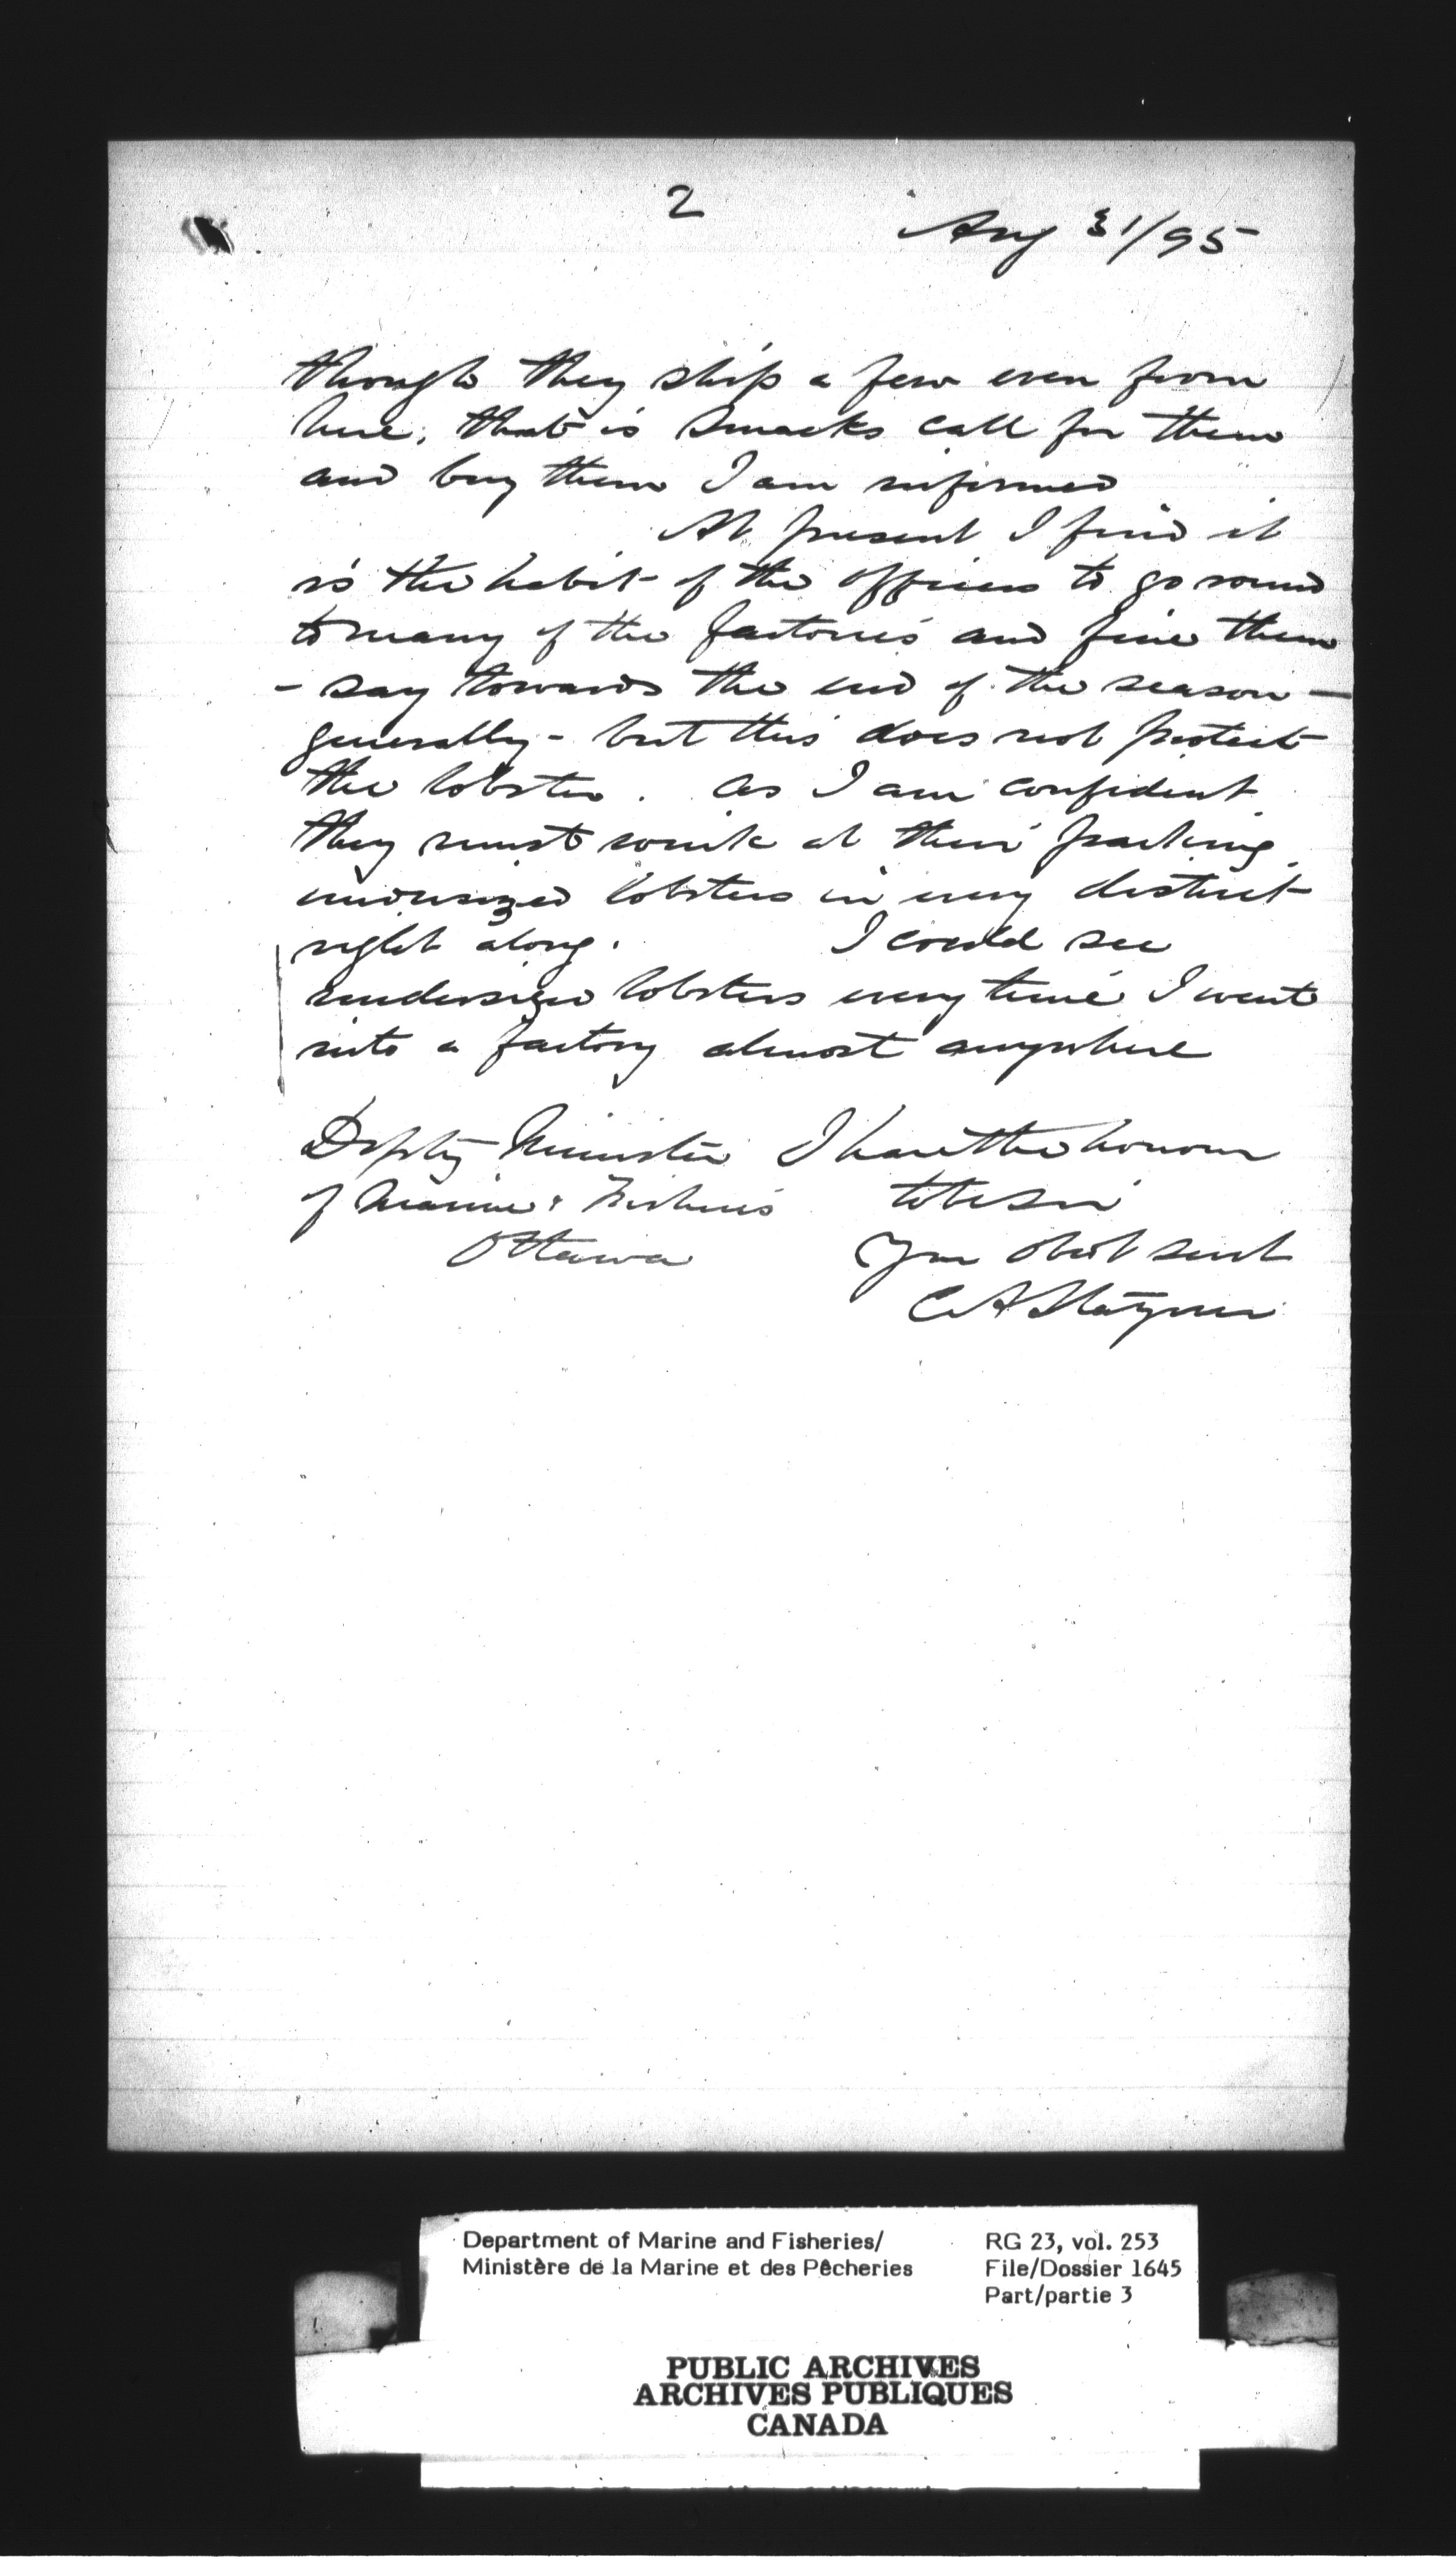 2
Aug 31/95
though they ship a few even from
here, that is Smacks call for them
and buy them I am informed
At present I find it
is the habit of the officers to go round
to many of the factories and fine them
- say towards the end of the season -
generally - but this does not protect
the lobster. As I am confident
they must wink at their packing
undersized lobsters in every district
right along. I could see
undersized lobsters every time I went
into a factory almost anywhere
Depty Minister I have the honour
of Marine & Fisheries to be Sir
Ottawa Your obdt servt
Department of Marine and Fisheries/
Ministère de la Marine et des Pêcheries
RG 23, vol. 253
File/Dossier 1645
Part/partie 3
PUBLIC ARCHIVES
ARCHIVES PUBLIQUES
CANADA